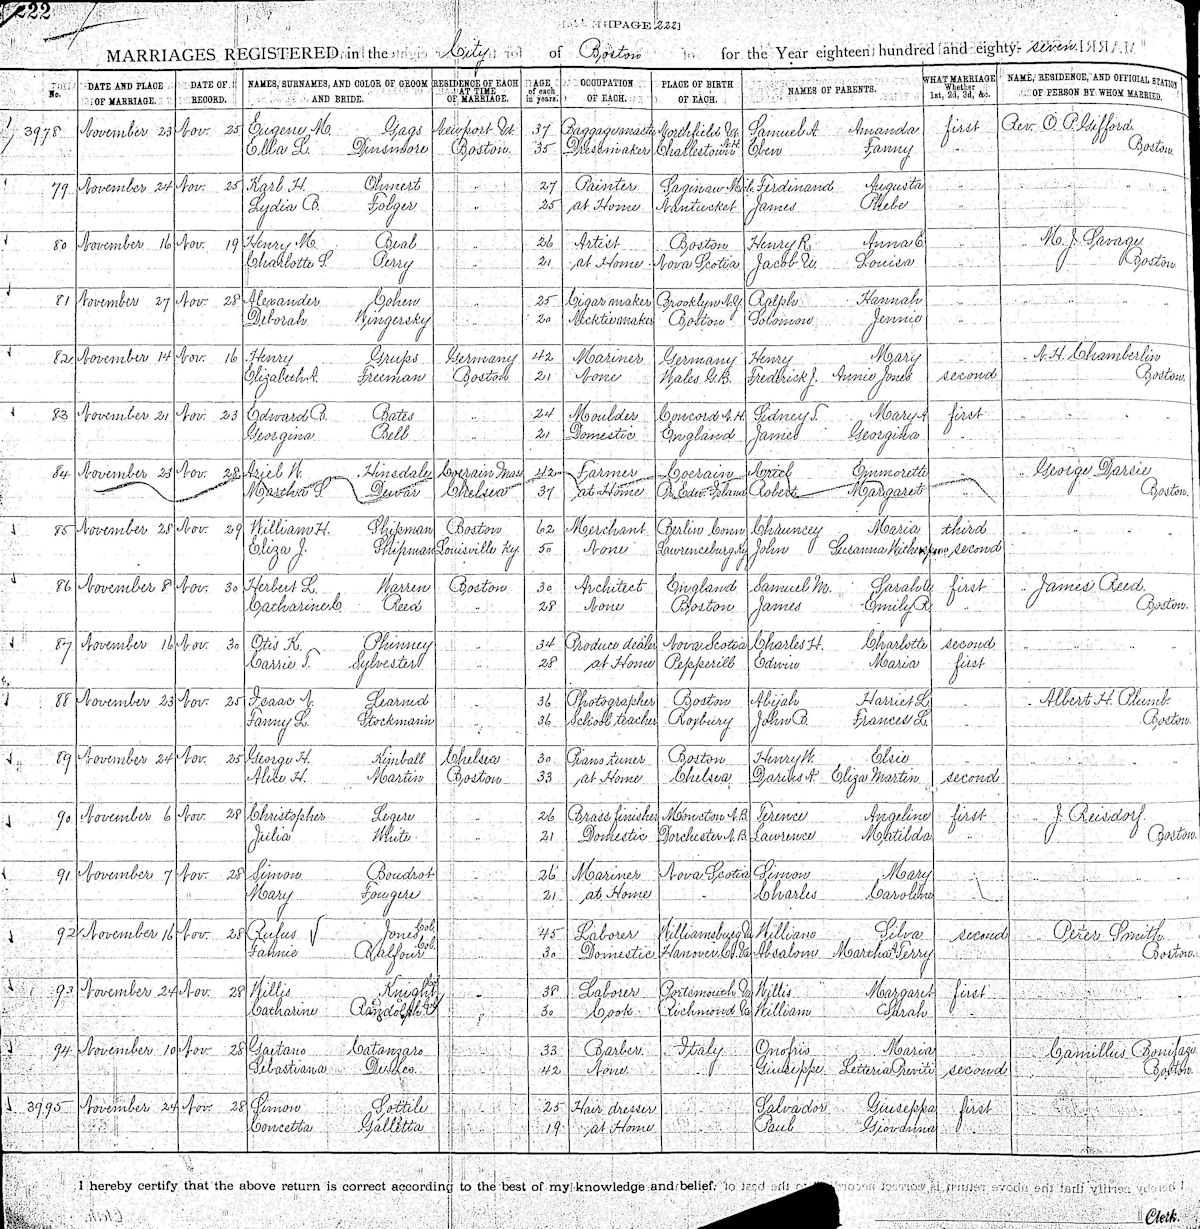 222
[PAGE 222]
MARRIAGES REGISTERED in the City of Boston for the Year eighteen hundred and eighty-seven.
No. DATE AND PLACE OF MARRIAGE. DATE OF RECORD. NAMES, SURNAMES, AND COLOR OF GROOM AND BRIDE. RESIDENCE OF EACH AT TIME OF MARRIAGE. AGE of each in years. OCCUPATION OF EACH. PLACE OF BIRTH OF EACH. NAMES OF PARENTS. WHAT MARRIAGE Whether 1st, 2d, 3d, &c. NAME, RESIDENCE, AND OFFICIAL STATION OF PERSON BY WHOM MARRIED.
3978 November 23 Nov. 25 Eugene M. Gags Newport Vt. 37 Baggage master Northfield Vt. Samuel A. Amanda first Rev. O. P. Gifford
Ella L. Dinsmore Boston. 35 Dressmaker Charlestown N.H. Eben Fanny " Boston.
79 November 24 Nov. 25 Karl H. Ohmert " 27 Painter Saginaw Mich. Ferdinand Augusta " " "
Lydia B. Folger " 25 at Home Nantucket James Phebe "
80 November 16 Nov. 19 Henry M. Beal " 26 Artist Boston Henry R. Anna E. " " M. J. Savage
Charlotte L. Perry " 21 at Home Nova Scotia Jacob W. Louisa " Boston
81 November 27 Nov. 28 Alexander Cohen " 25 Cigar maker Brooklyn N.Y. Ralph Hannah " " "
Deborah Wingersky " 20 Necktie maker Boston Solomon Jennie "
82 November 14 Nov. 16 Henry Grups Germany 42 Mariner Germany Henry Mary " " N. H. Chamberlin
Elizabeth A. Freeman Boston 21 None Wales G.B. Frederick J. Annie Jones second Boston.
83 November 21 Nov. 23 Edward B. Bates " 24 Moulder Concord N.H. Sidney S. Mary A. first " "
Georgina Bell " 21 Domestic England James Georgina "
84 November 23 Nov. 28 Aziel W. Hinsdale Colrain Mass 42 Farmer Colrain Ariel Emmorette " " George Darsie
Martha S. Dewar Chelsea 37 at Home Pr. Edw. Island Robert Margaret " Boston.
85 November 28 Nov. 29 William H. Shipman Boston 62 Merchant Berlin Conn Chauncey Maria third " "
Eliza J. Shipman Louisville Ky 50 None Lawrenceburg Ky John Susanna Witherspoon second
86 November 8 Nov. 30 Herbert L. Warren Boston 30 Architect England Samuel M. Sarah W. first " James Reed
Catharine C. Reed " 28 None Boston James Emily R. " Boston.
87 November 16 Nov. 30 Otis K. Phinney " 34 Produce dealer Nova Scotia Charles H. Charlotte second " "
Carrie T. Sylvester " 28 at Home Pepperill Edwin Maria first
88 November 23 Nov. 25 Isaac N. Learned " 36 Photographer Boston Abijah Harriet L. " " Albert H. Plumb
Fanny L. Stockmann " 36 School teacher Roxbury John B. Frances L. " Boston.
89 November 24 Nov. 25 George H. Kimball Chelsea 30 Piano tuner Boston Henry W. Elsie " " "
Alice H. Martin Boston 33 at Home Chelsea Darius A. Eliza Martin second
90 November 6 Nov. 28 Christopher Legere " 26 Brass finisher Moncton N.B. Terence Angeline first " J. Reisdorf
Julia White " 21 Domestic Dorchester N.B. Lawrence Matilda " Boston.
91 November 7 Nov. 28 Simon Boudrot " 26 Mariner Nova Scotia Simon Mary " " "
Mary Fougere " 21 at Home " Charles Caroline
92 November 16 Nov. 28 Rufus Jones Col. " 45 Laborer Williamsburg Va William Silva second " Peter Smith
Fannie Balfour Col. " 30 Domestic Hanover Ct. Va Absalom Martha A Terry " Boston.
93 November 24 Nov. 28 Willis Knight Col. " 38 Laborer Portsmouth Va Willis Margaret first " "
Catharine Randolph Col. " 30 Cook Richmond Va William Sarah "
94 November 10 Nov. 28 Gaetano Catanzaro " 33 Barber Italy Onofrio Maria " " Camillus Boniface
Sebastiana " 42 None " Giuseppe Letteria Previti second Boston.
3995 November 24 Nov. 28 Simon Sottile " 25 Hair dresser " Salvador Giuseppa first " "
Concetta Galletta " 19 at Home " Paul Giovanna "
I hereby certify that the above return is correct according to the best of my knowledge and belief.
Clerk.